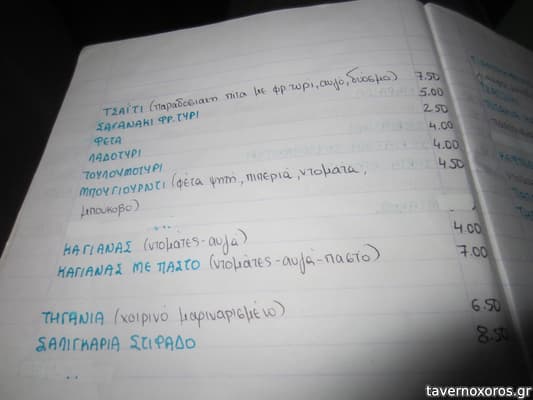 ΤΣΑΪΤΙ (παραδοσιακή πιτα με φρ.τυρι, αυγό, δυόσμο) 7.50
ΣΑΓΑΝΑΚΙ ΦΡ.ΤΥΡΙ 5.00
ΦΕΤΑ 2.50
ΛΑΔΟΤΥΡΙ 4.00
ΤΟΥΛΟΥΜΟΤΥΡΙ 4.00
ΜΠΟΥΓΙΟΥΡΝΤΙ (φέτα ψητή, πιπεριά, ντομάτα, 4.50
μπούκοβο)
ΚΑΓΙΑΝΑΣ (ντομάτες-αυγά) 4.00
ΚΑΓΙΑΝΑΣ ΜΕ ΠΑΣΤΟ (ντομάτες-αυγά-παστό) 7.00
ΤΗΓΑΝΙΑ (χοιρινό μαριναρισμένο) 6.50
ΣΑΛΙΓΚΑΡΙΑ ΣΤΙΦΑΔΟ 8.50
tavernoxoros.gr